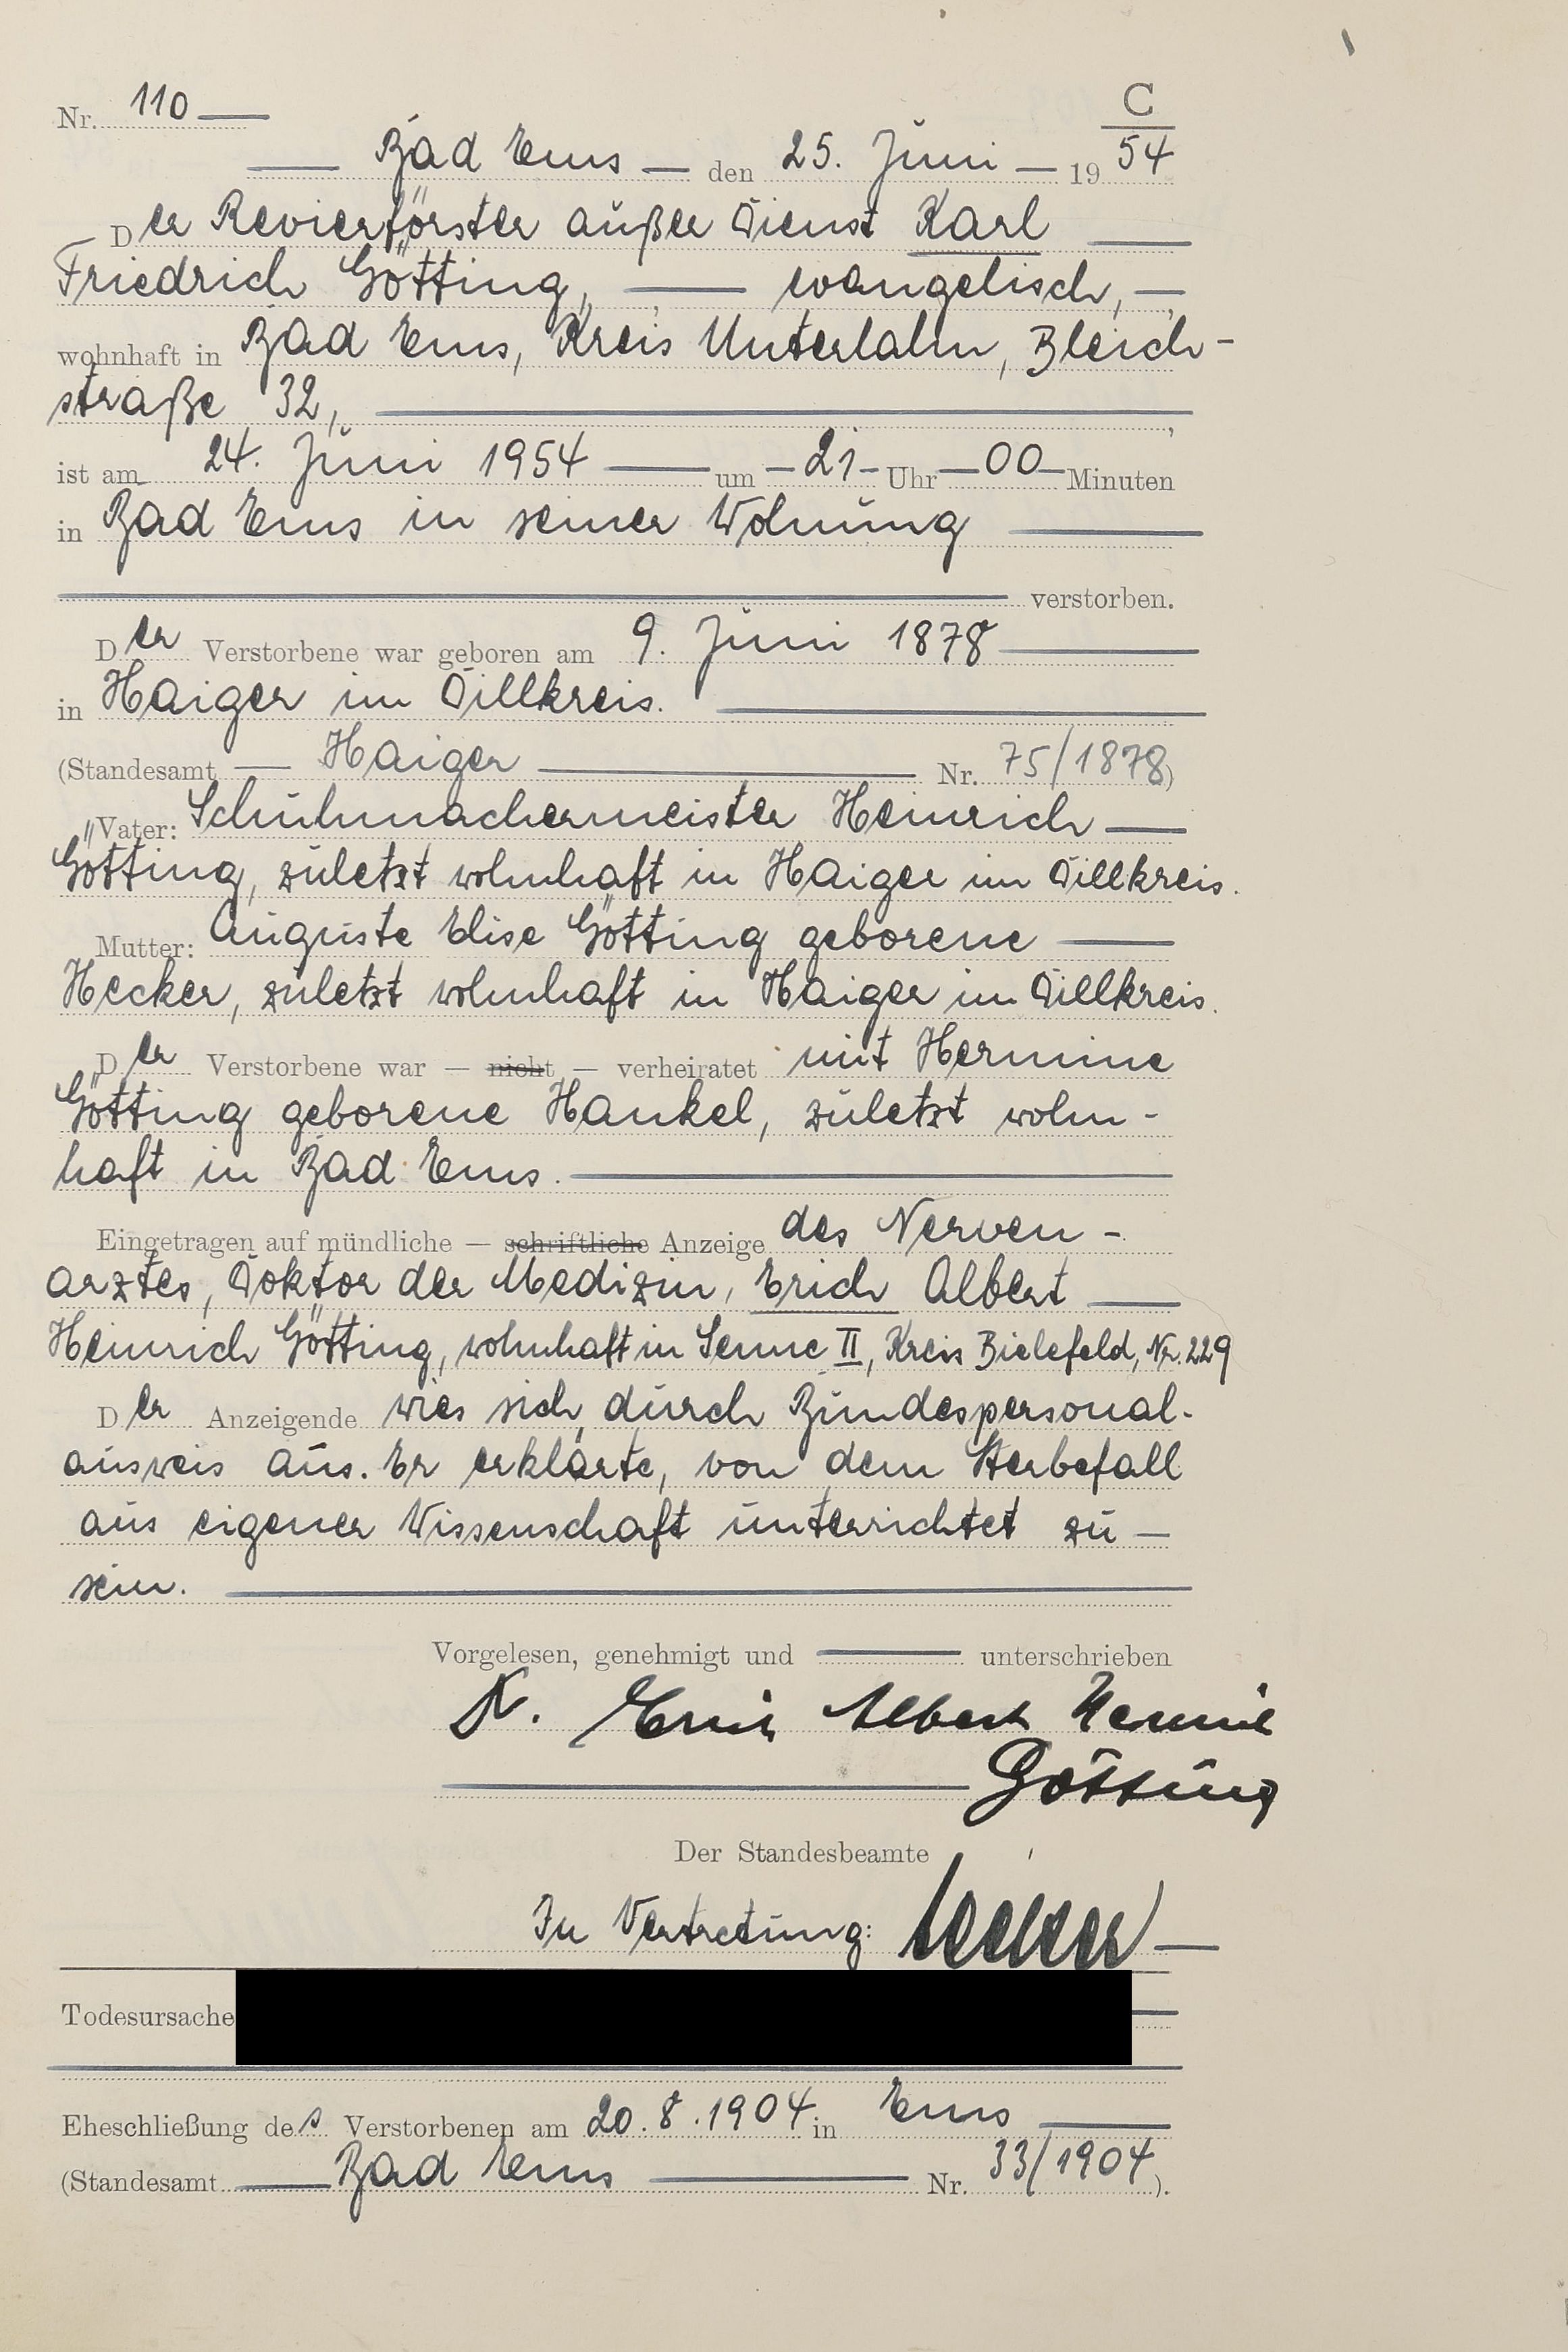 C
Nr. 110 —
— Bad Ems — den 25. Juni — 19 54
Der Revierförster außer Dienst Karl —
Friedrich Götting, — evangelisch, —
wohnhaft in Bad Ems, Kreis Unterlahn, Bleich-
straße 32, —,
ist am 24. Juni 1954 — um — 21 — Uhr — 00 — Minuten
in Bad Ems in seiner Wohnung —
— verstorben.
Der Verstorbene war geboren am 9. Juni 1878 —
in Haiger im Dillkreis. —
(Standesamt — Haiger — Nr. 75/1878)
Vater: Schuhmachermeister Heinrich —
Götting, zuletzt wohnhaft in Haiger im Dillkreis.
Mutter: Auguste Elise Götting geborene —
Hecker, zuletzt wohnhaft in Haiger im Dillkreis.
Der Verstorbene war — nicht — verheiratet mit Hermine
Götting geborene Hankel, zuletzt wohn-
haft in Bad Ems. —
Eingetragen auf mündliche — schriftliche Anzeige des Nerven-
arztes, Doktor der Medizin, Erich Albert —
Heinrich Götting, wohnhaft in Senne II, Kreis Bielefeld, Nr. 229
Der Anzeigende wies sich durch Bundespersonal-
ausweis aus. Er erklärte, von dem Sterbefall
aus eigener Wissenschaft unterrichtet zu —
sein. —
Vorgelesen, genehmigt und — unterschrieben
Dr. Erich Albert Heinrich
— Götting
Der Standesbeamte
In Vertretung:
Todesursache
Eheschließung des Verstorbenen am 20.8.1904 in Ems —
(Standesamt — Bad Ems — Nr. 33/1904).